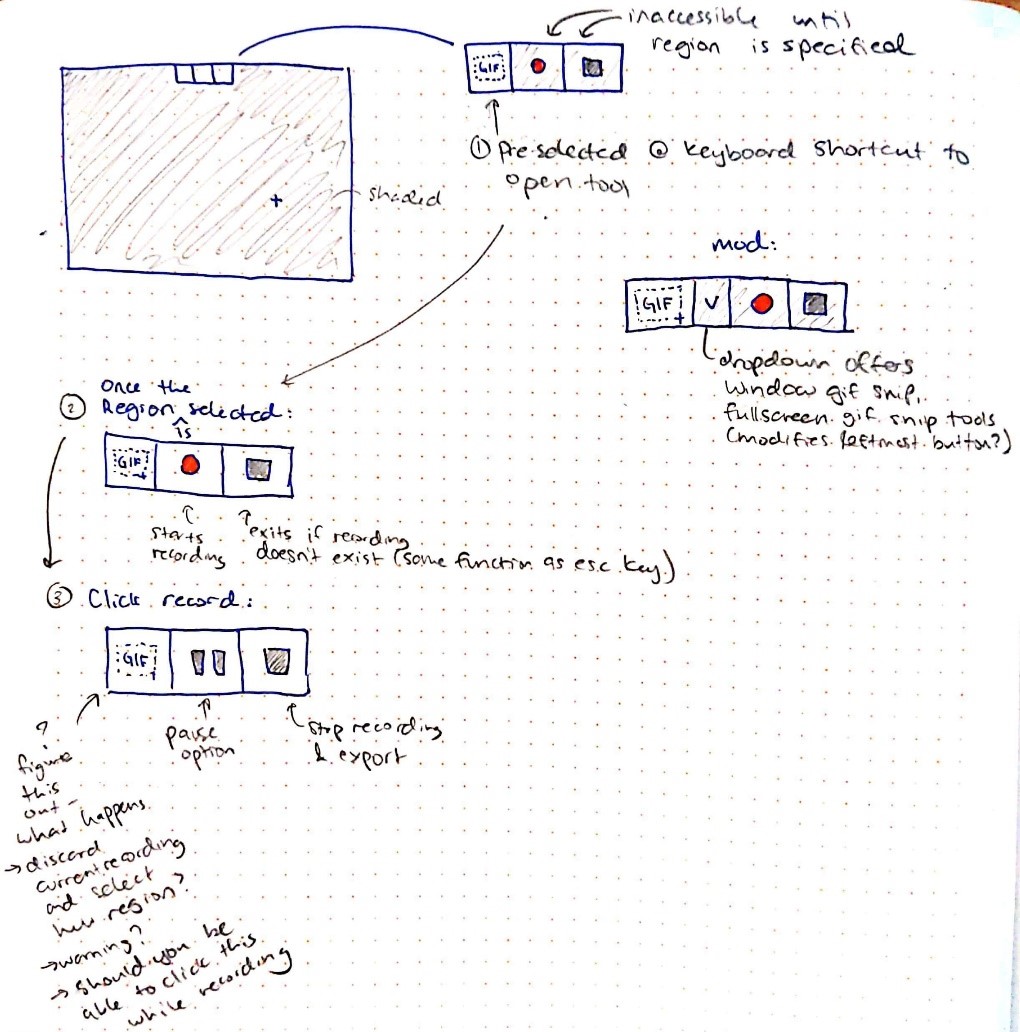 inaccessible until
region is specified
GIF
① Pre-selected @ keyboard shortcut to
open tool
shaded
mod:
GIF V
dropdown offers
window gif snip,
fullscreen gif snip tools
(modifies leftmost button?)
② Once the
Region ^ selected:
is
GIF
starts
recording
exits if recording
doesn't exist (same function as esc key)
③ Click record:
GIF
pause
option
stop recording
& export
?
figure
this
out -
what happens
→ discard
current recording
and select
new region?
→ warning?
→ should you be
able to click this
while recording